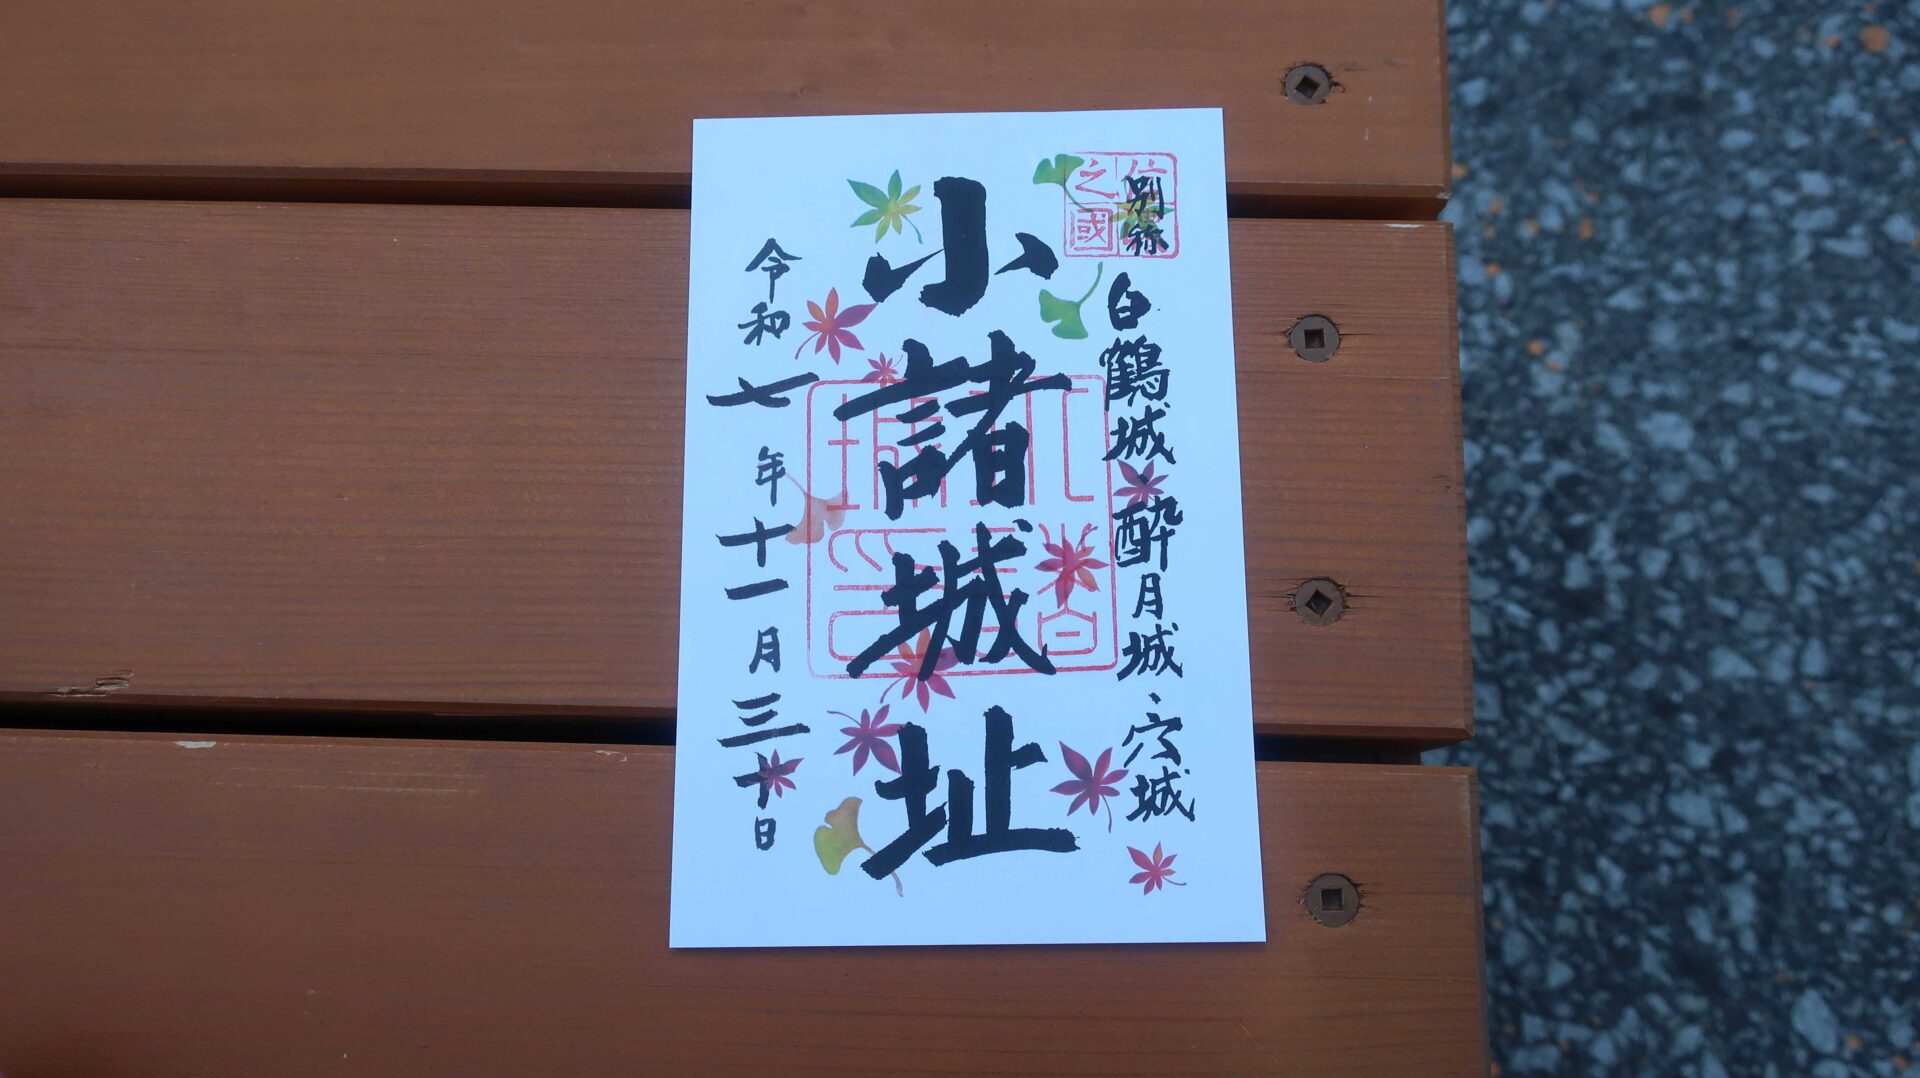 別称
白鶴城、酔月城、穴城
小諸城址
令和七年十一月三十日
之國